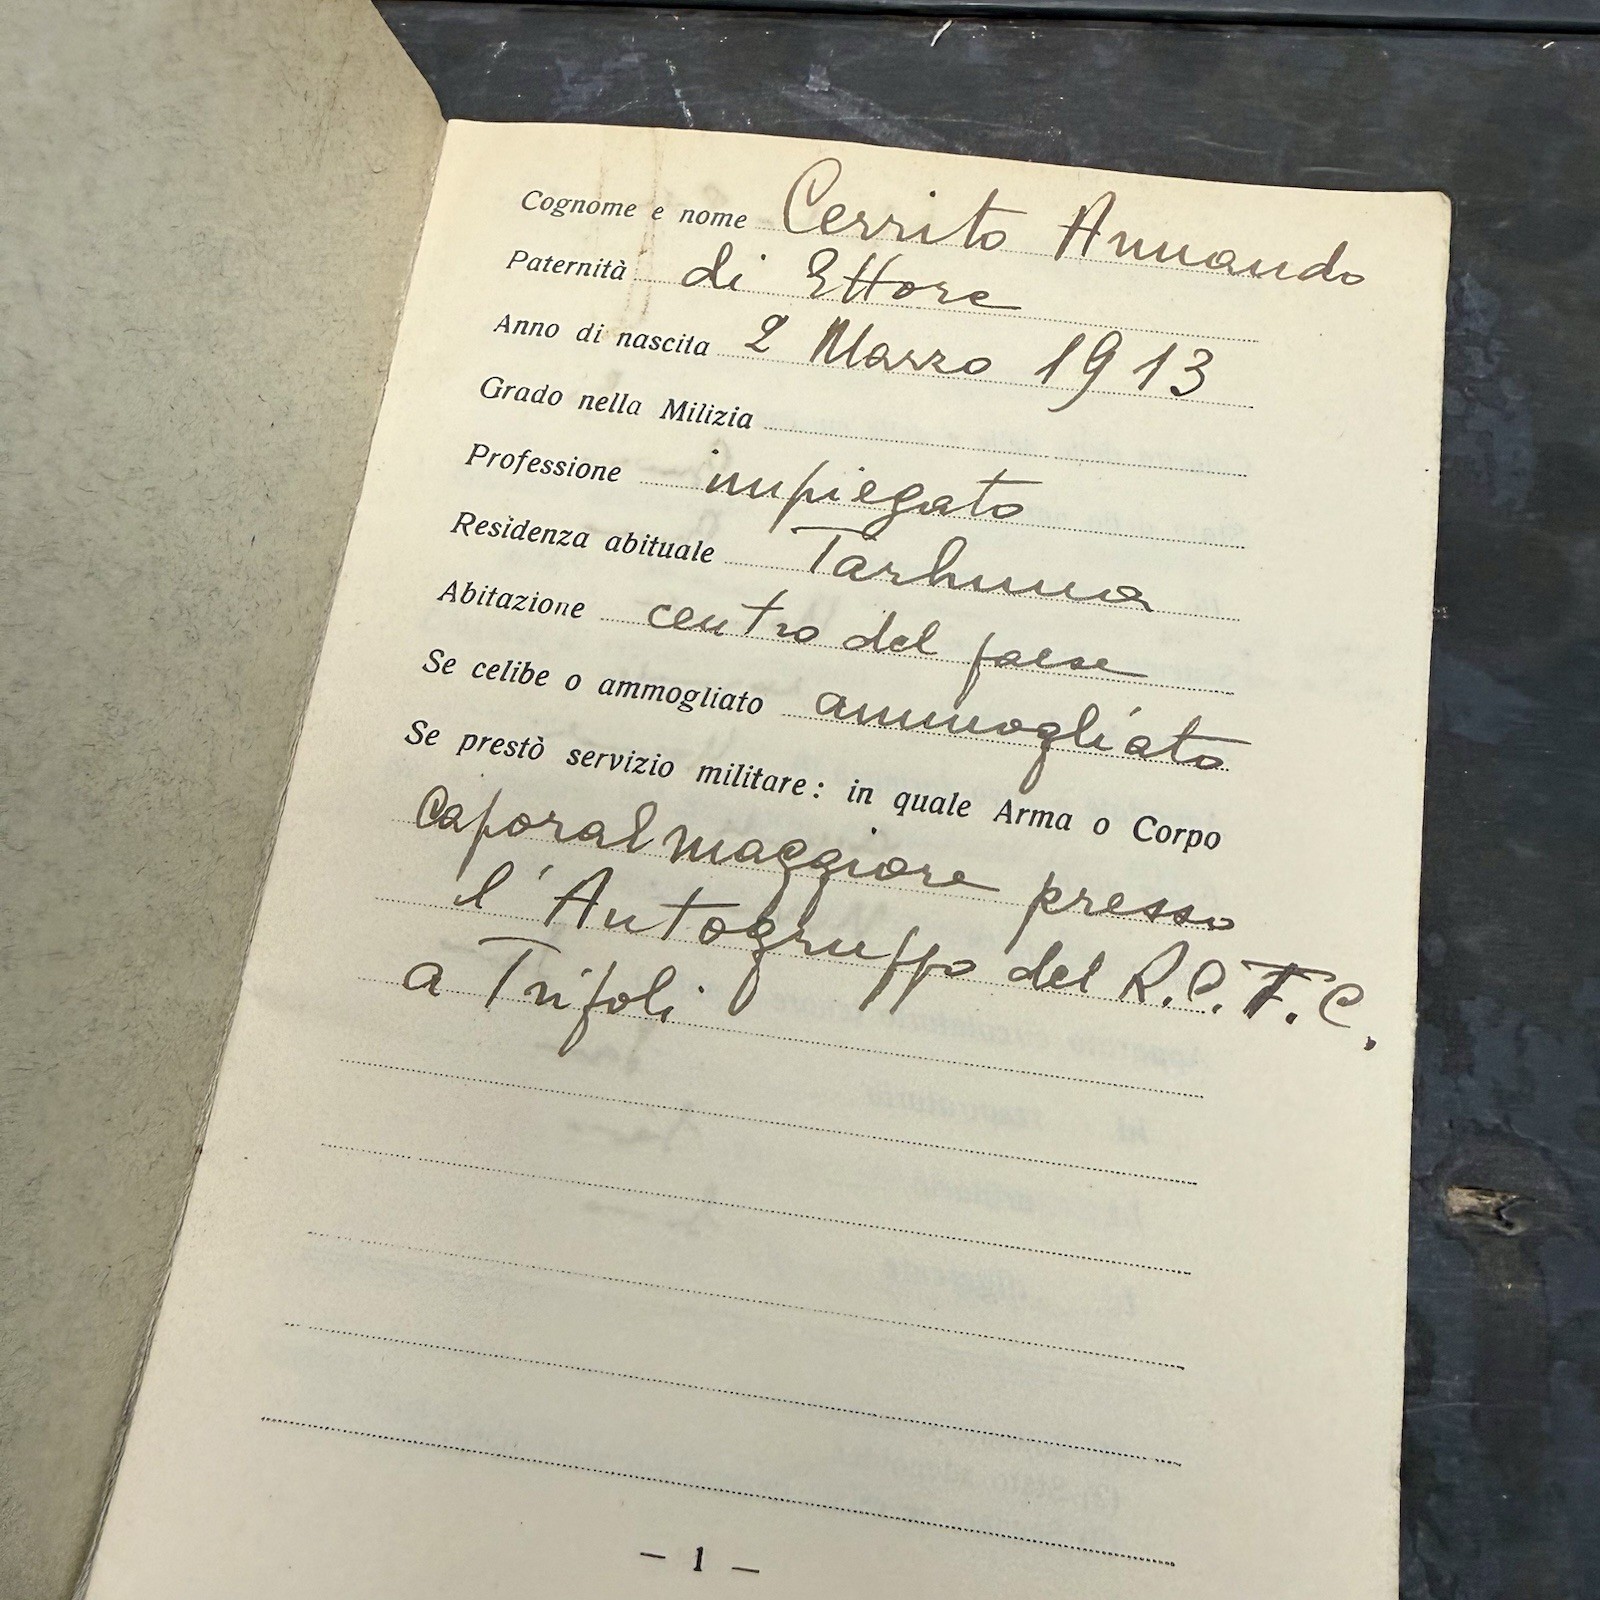 Cognome e nome Cerrito Armando
Paternità di Ettore
Anno di nascita 2 Marzo 1913
Grado nella Milizia
Professione impiegato
Residenza abituale Tarhuna
Abitazione centro del paese
Se celibe o ammogliato ammogliato
Se prestò servizio militare: in quale Arma o Corpo
Caporalmaggiore presso
l'Autogruppo del R.C.T.C.
a Tripoli
— 1 —